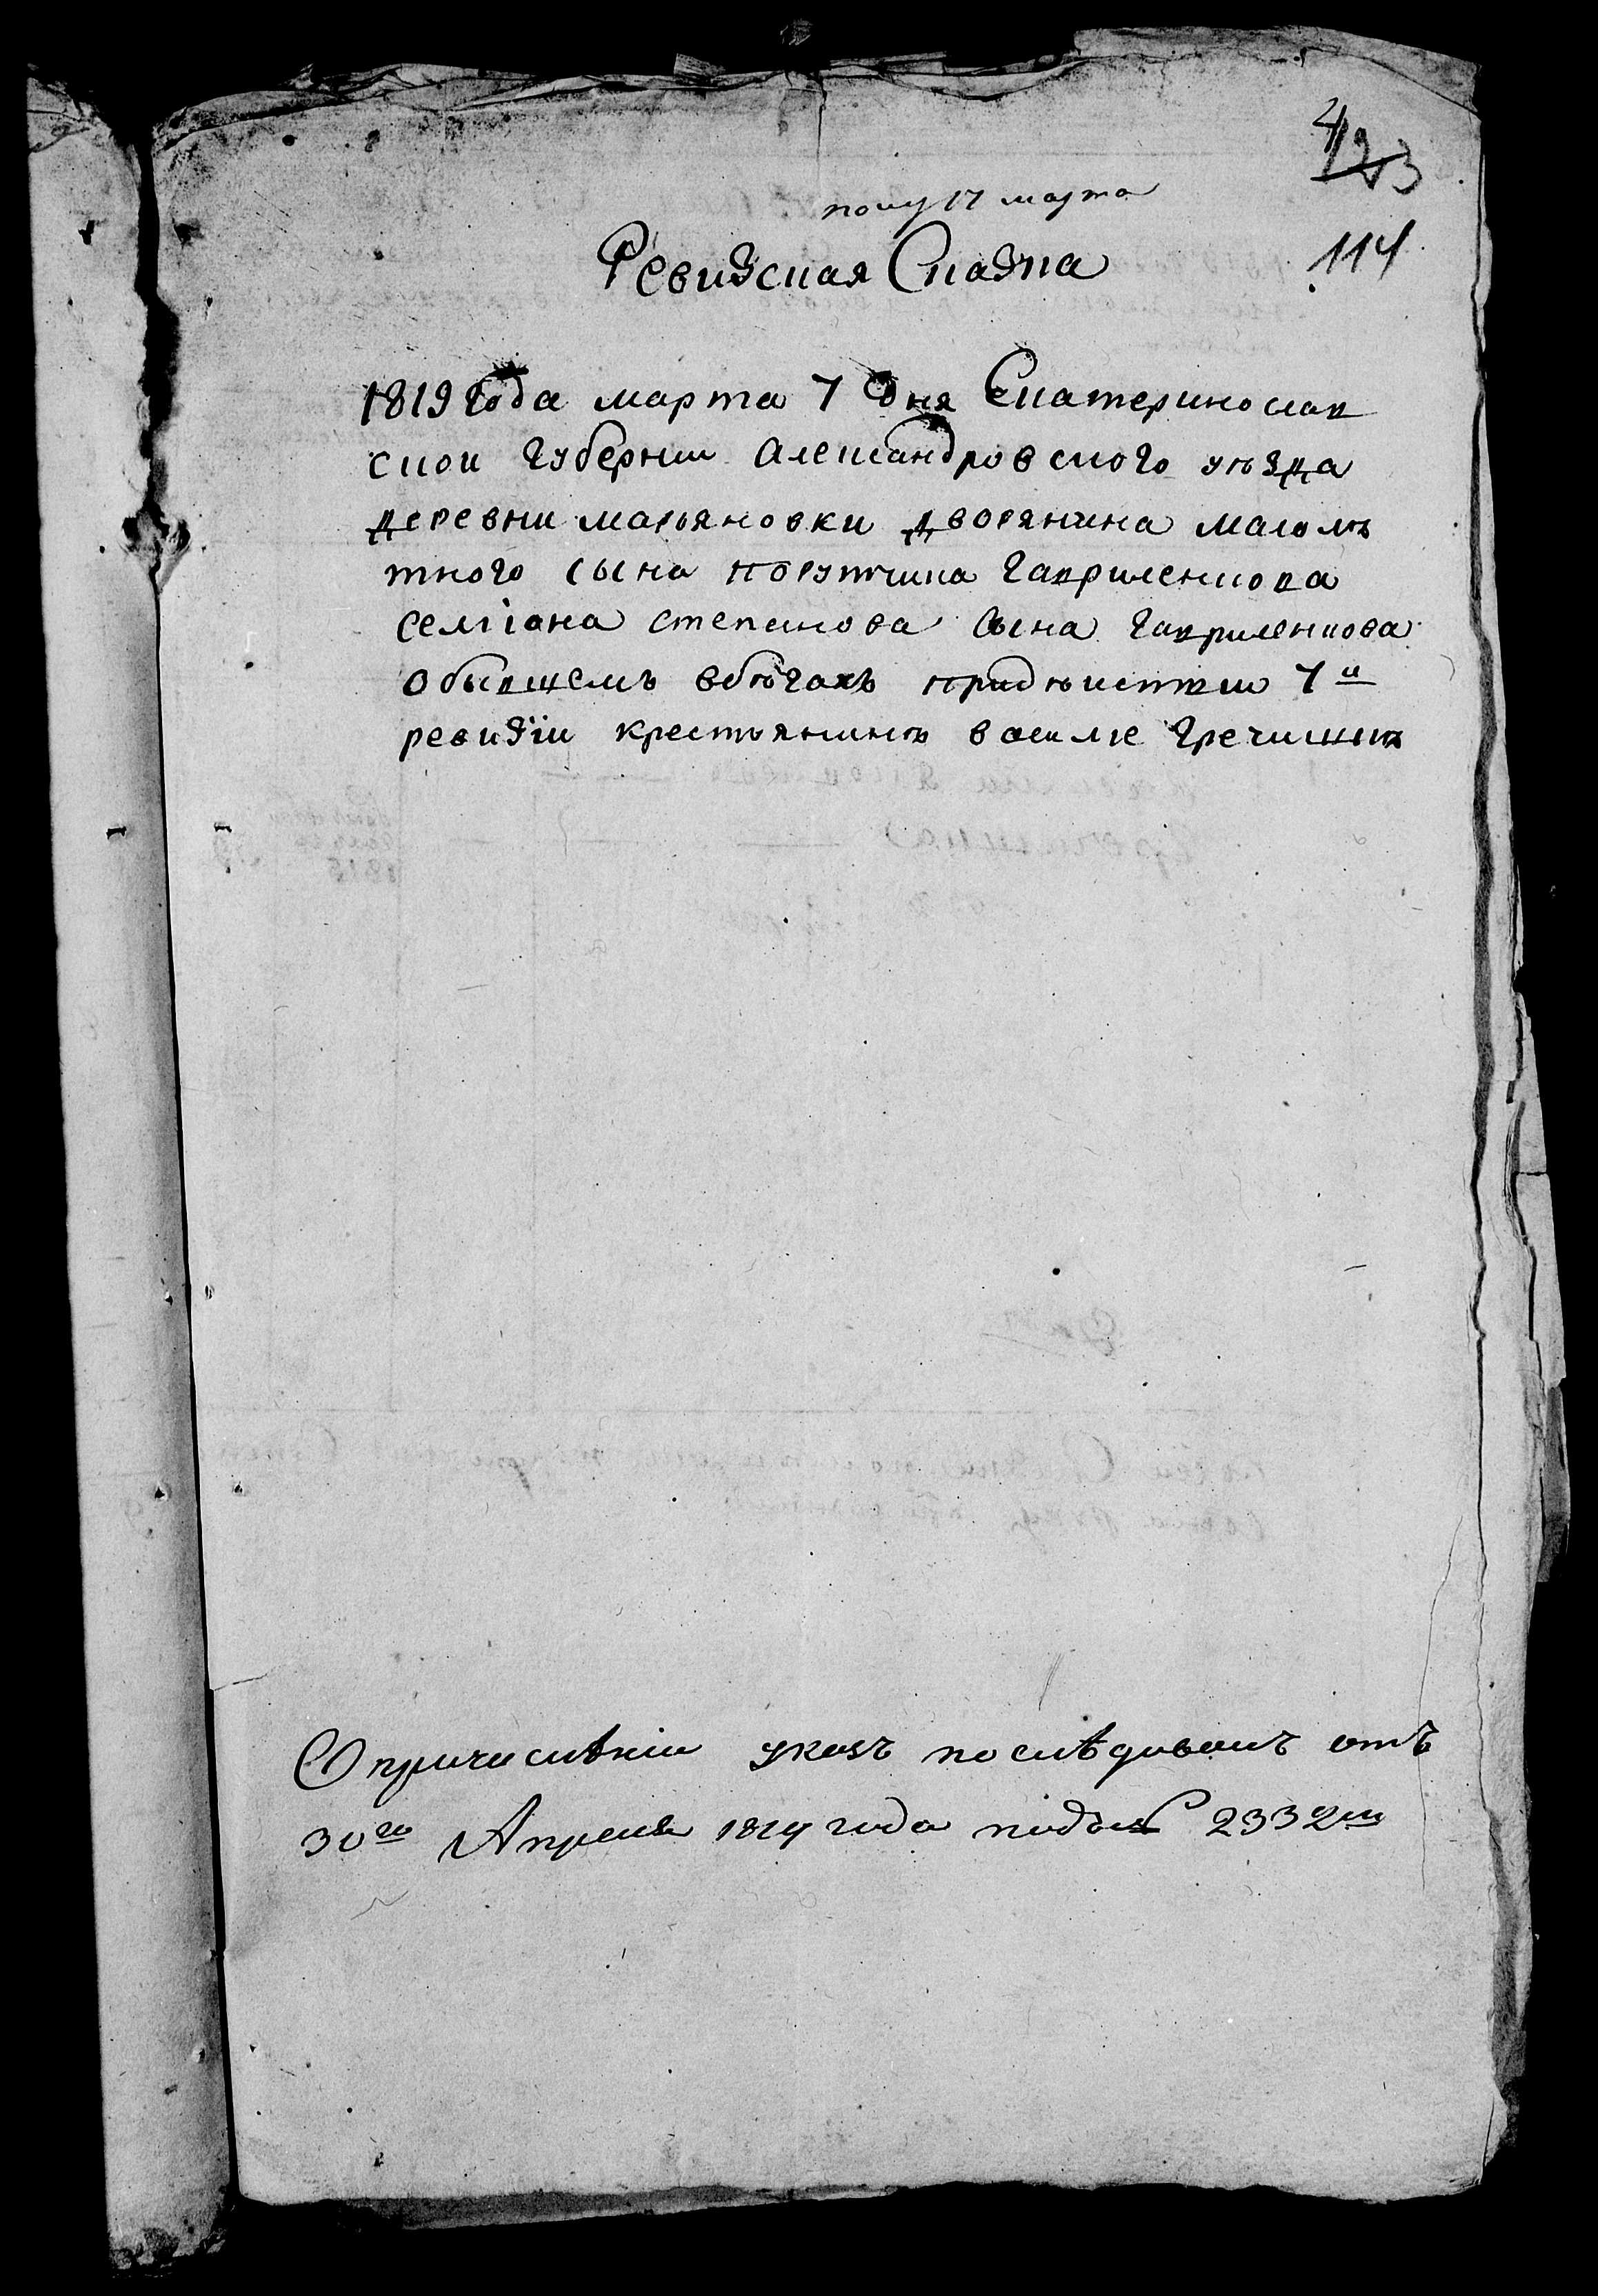 123
114
полу 17 марта
Ревизская Сказка
1819 года марта 7 дня Екатеринослав
скои губернии александровского уъзда
деревни марьяновки дворянина малолъ
тного сына порутчика гавриленкова
семіона степанова сына гавриленкова
о бывшем въ бъгахъ при дъистви 7и
ревизіи крестьянинъ василе гречишкъ
О причислѣніи указъ послѣдовалъ отъ
30го Апреля 1819 года подъ № 2332м